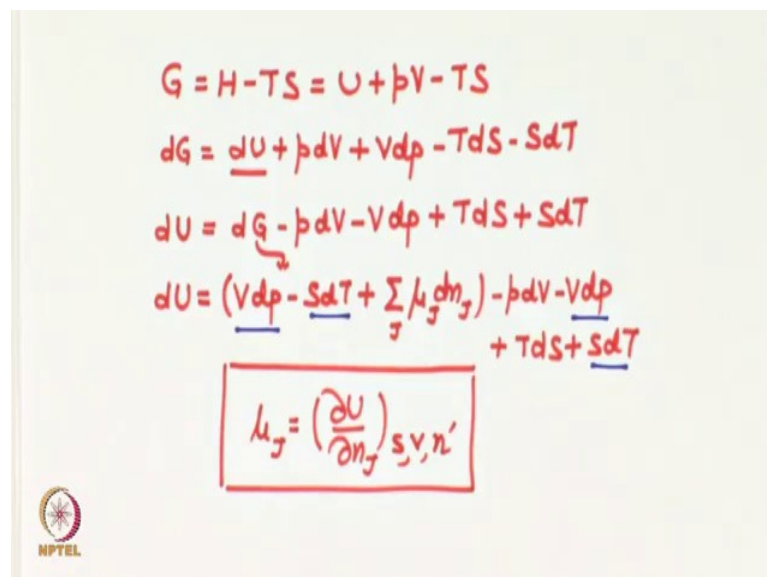 G = H - TS = U + pV - TS
dG = dU + pdV + Vdp - TdS - SdT
dU = dG - pdV - Vdp + TdS + SdT
dU = (Vdp - SdT + Σ_J μ_J dn_J) - pdV - Vdp
+ TdS + SdT
μ_J = (∂U/∂n_J)_S,V,n′
NPTEL